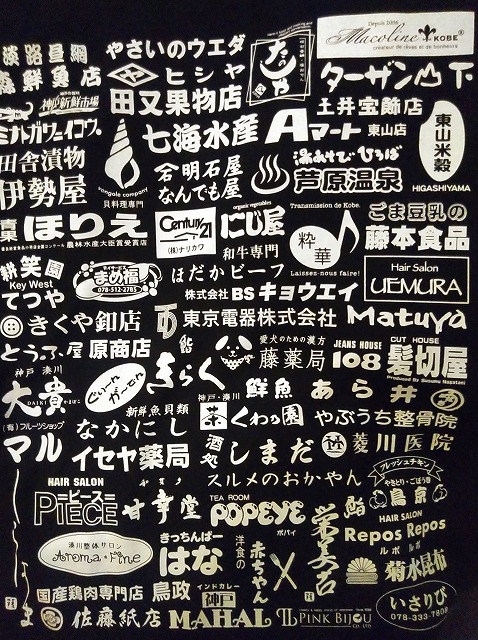 Depuis 2006
Macoline KOBE
créateur de rêves et de bonheurs
淡路昌網
森鮮魚店
やさいのウエダ
ヒシヤ
たじや
ターザン山下
神戸新鮮市場
田又果物店
土井宝飾店
ミナトガワコイコウ。
七海水産
Aマート 東山店
東山米穀
HIGASHIYAMA
田舎漬物
伊勢屋
vongole company
貝料理専門
明石屋
なんでも屋
湯あそびひろば
芦原温泉
organic vegetables
ほりえ
農林水産大臣賞受賞店
Century 21
(株)ナリカワ
にじ屋
Transmission de Kobe.
粋華
Laissez-nous faire!
ごま豆乳の
藤本食品
耕笑園
Key West
まめ福
078-512-2785
和牛専門
ほだかビーフ
Hair Salon
UEMURA
てつや
株式会社BSキョウエイ
きくや釦店
東京電器株式会社
Matuya
とうふ屋 原商店
鮨
きらく
愛犬のための漢方
藤薬局
JEANS HOUSE
108
CUT HOUSE
髪切屋
Produced By Susumu Nagatani
神戸 湊川
大貴
DAIKI
ぐぃーんがーせん
神戸・湊川
鮮魚 あら井
新鮮魚貝類
なかにし
茶 くわの園
やぶうち整骨院
(有)フルーツショップ
マル
イセヤ薬局
酒処 しまだ
菱川医院
スルメのおかやん
フレッシュチキン
やきとり・ごぼうき
鳥京
HAIR SALON
ピース
PIECE
甘幸堂
TEA ROOM
POPEYE
ポパイ
栄美古
鮨
HAIR SALON
Repos Repos
ルポ ルポ
湊川整体サロン
Aroma・Fine
きっちんばー
はな
洋食の
赤ちゃん
菊水昆布
国産鶏肉専門店 鳥政
インドカレー
神戸
MAHAL
佐藤紙店
PINK BIJOU
CO. LTD
いさりび
078-333-7808